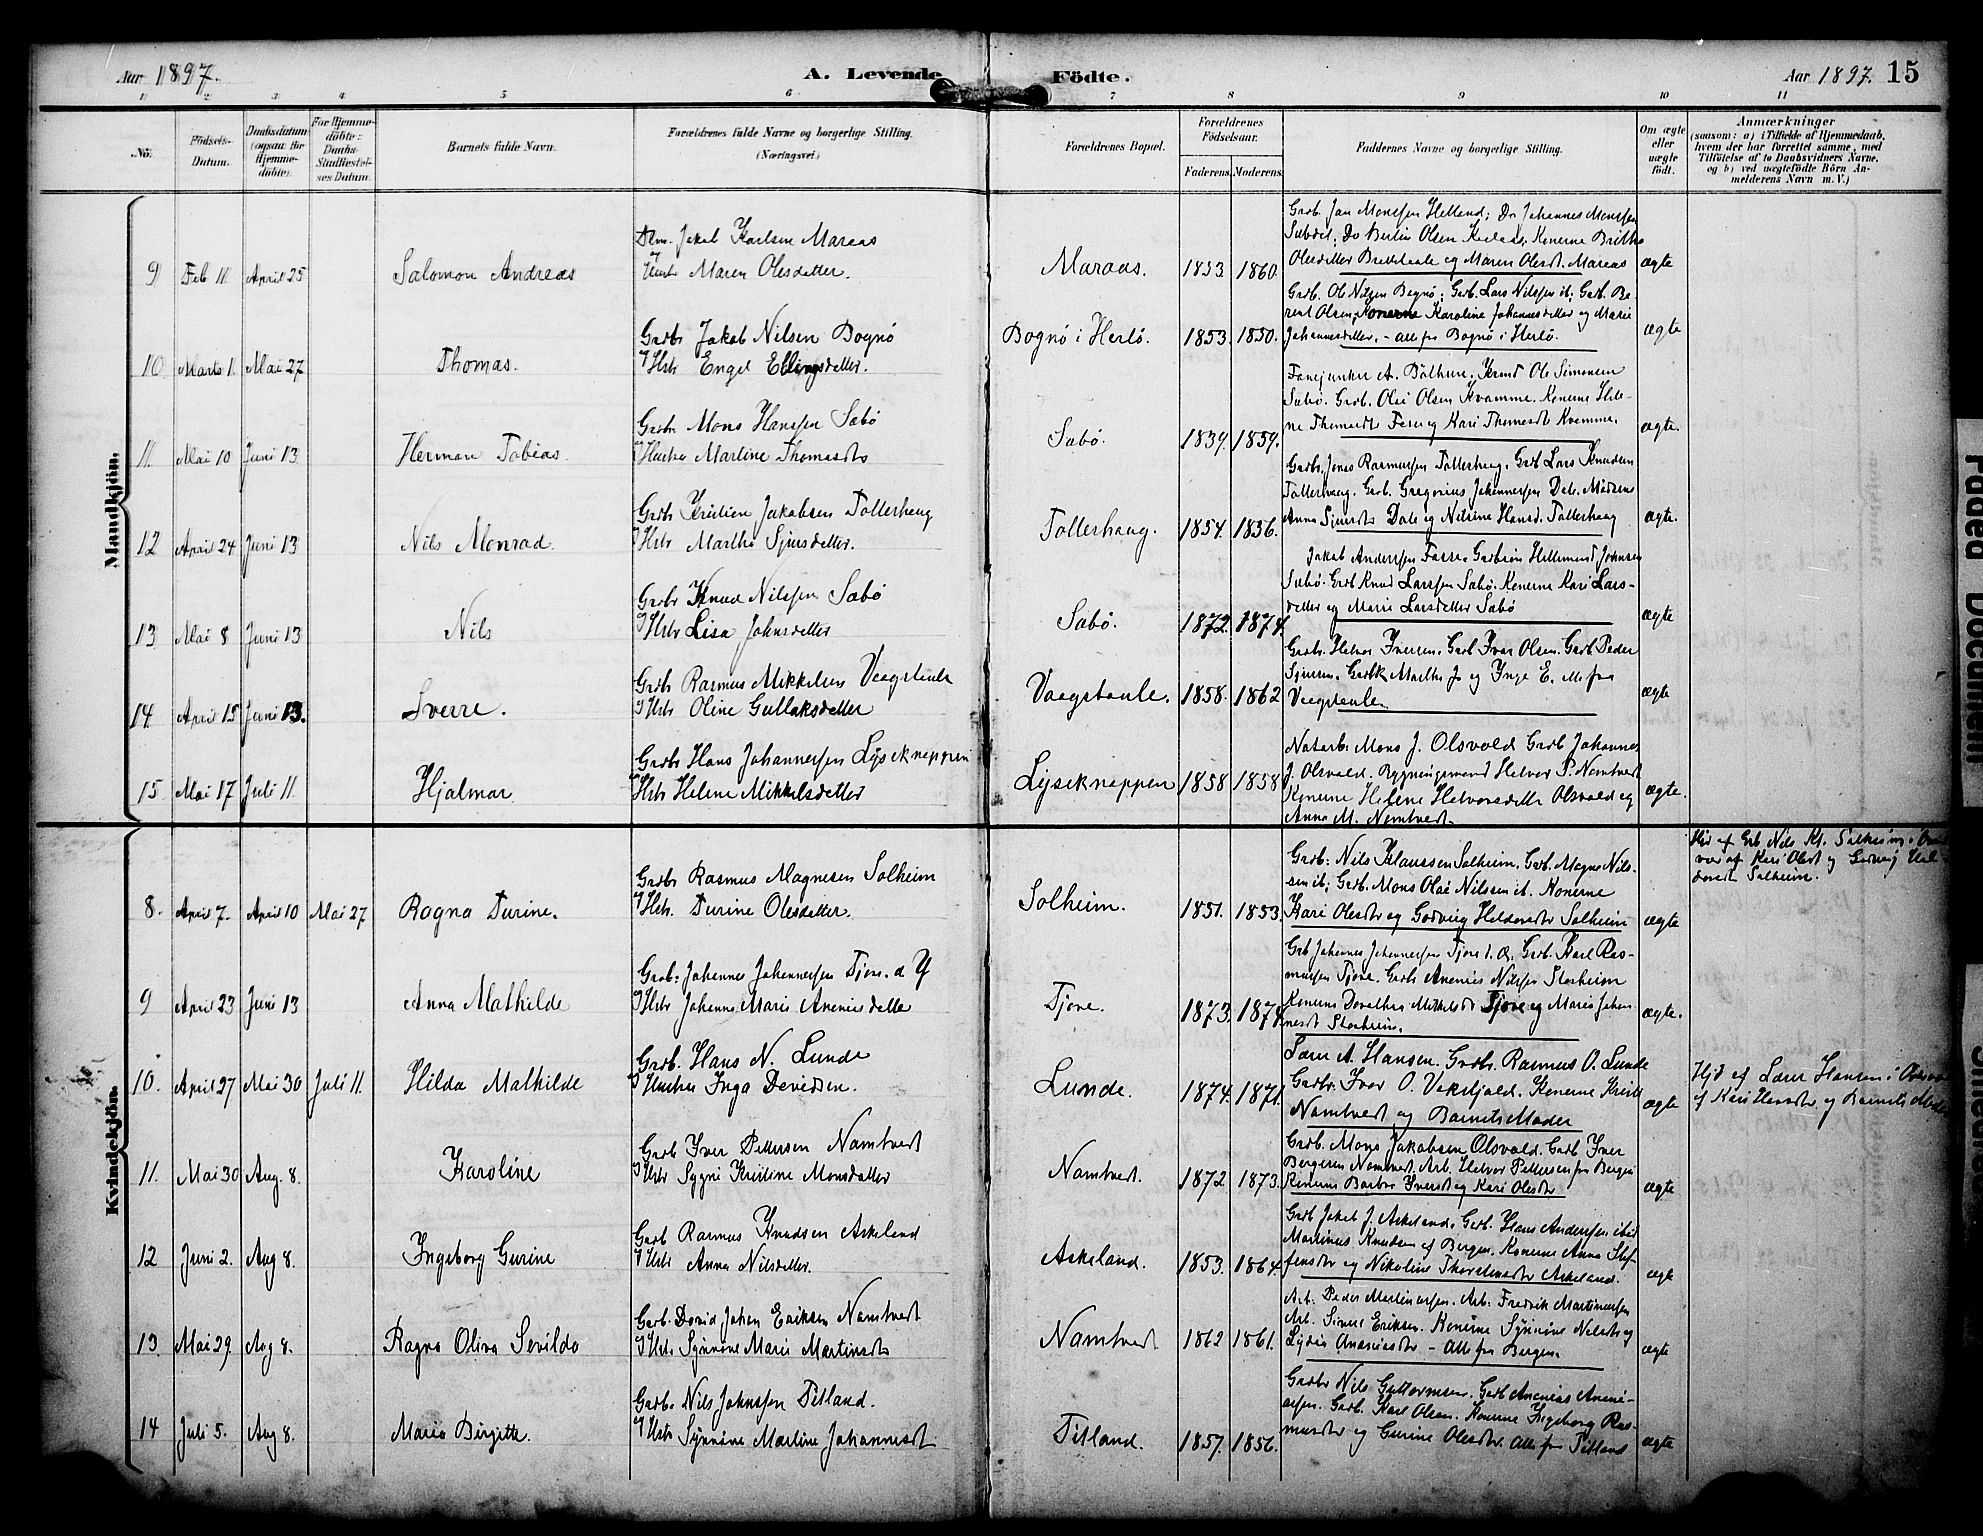 Aar 1897.
A. Levende Födte.
Aar 1897. 15
1 2 3 4 5 6 7 8 9 10 11
No.
Födsels-
Datum.
Daabsdatum
(ogsaa for
Hjemme-
döbte).
For Hjemme-
döbte:
Daabs-
Stadfæstel-
ses Datum.
Barnets fulde Navn.
Forældrenes fulde Navne og borgerlige Stilling.
(Næringsvei)
Forældrenes Bopæl.
Forældrenes
Födselsaar.
Faderens. Moderens.
Faddernes Navne og borgerlige Stilling.
Om ægte
eller
uægte
födt.
Anmærkninger
(saasom: a) i Tilfælde af Hjemmedaab,
hvem der har forrettet samme, med
Tilföielse af to Daabsvidners Navne,
og b) ved uægtefödte Börn An-
melderens Navn m. V.)
Mandkjön.
9 Feb 11 April 25 Salomon Andreas
Jakob Karlsen Maraas
Maren Olesdatter.
Maraas. 1853 1860
Grdb. Jan Monssen Helland; Do Johannes Monssen
Olesdatter og Maren Olesdt. Maraas
ægte
10 Marts 1. Mai 27 Thomas.
Grdbr Jakob Nilsen Bognö
Hstr Engel Ellingsdatter.
Bognö i Herlö. 1853. 1850.
Grdb. Ole Nilsen Bognö; Grdb. Lars Nilssen it; Grdb. Be-
rent Olsen; Konerne Karoline Johannesdatter og Marie
Johannesdatter, - alle fra Bognö i Herlö.
ægte
11. Mai 10 Juni 13 Herman Tobias.
Grdbr Mons Hanssen Sæbö
Hustru Martine Thomasdtr
Sæbö. 1839. 1859.
Fanejunker A. Ole Simonsen
Sæbö. Grdb. Ole Olsen Kvamme. Konerne Hele-
ne Thomasdt og Kari Thomasdt Kvamme.
ægte.
12 April 24 Juni 13 Nils Monrad.
Grdbr Kristian Jakobsen Tollerhaug
Hstr Martha Sjursdatter.
Tollerhaug. 1854. 1856.
Grdbr. Jonas Rasmussen Tollerhaug. Grdb Lars Knudsen
Tollerhaug. Grdb. Gregorius Johannessen Dale.
Anna Sjursdtr Dale og Nilsine Hansd. Tollerhaug
ægte.
13 Mai 8 Juni 13 Nils
Grdbr Knud Nilssen Sæbö
Hstr Lisa Johnsdatter
Sæbö. 1872. 1874.
Jakob Anderssen Johnsen
Sæbö. Grdb Knud Larssen Sæbö. Konerne Kari Lars-
datter og Marie Larsdatter Sæbö
ægte
14 April 15 Juni 13. Sverre.
Grdbr Rasmus Mikkelsen Vaagstaule
Hstr Oline Gullaksdatter
Vaagstaule. 1858. 1862
Grdbr. Helvor Iversen. Grdb Ivar Olsen. Grdb Peder
Sjursen. Martha J og Inga E. alle fra
Vaagstaule
ægte
15 Mai 17 Juli 11. Hjalmar
Grdbr Hans Johannessen Lyseknappen
Hstr Helene Mikkelsdatter
Lyseknappen 1858 1858
Mons J. Olsvold Grdb Johannes
J. Olsvold. Bygningsmand Helvor P. Namtvedt
Konerne Helene Helvorsdatter Olsvold og
Anna M. Namtvedt.
ægte.
Kvindekjön.
8. April 7. April 10 Mai 27 Ragna Turine.
Grdbr Rasmus Magnesen Solheim
Hstr. Turine Olesdatter.
Solheim. 1851. 1853.
Grdb: Nils Klaussen Solheim. Grdb. Magne Nils-
sen it; Grdb. Mons Olai Nilssen it. Konerne
Kari Olesdtr og Solheim
ægte
Hjd af Grb Nils Kl. Solheim.
af Kari Olesdt og
Solheim.
9 April 23 Juni 13 Anna Mathilde
Grdb. Johannes Johannessen Tjore. d Y
Hstr Johanna Marie Ananiasdatter
Tjore. 1873. 1874.
Grb Johannes Johannessen Tjore d. Æ. Grdb. Karl Ras-
mussen Tjore. Grdb Ananias Nilssen Storheim
Konerne Dorothea Mikkelsdt Tjore og Marie Johan-
nesdt Storheim.
ægte.
10. April 27 Mai 30 Juli 11. Hilda Mathilde
Grdb. Hans N. Lunde
Hustru Inga Davidsen.
Lunde. 1874. 1871.
Lærer A. Hansen. Grdbr. Rasmus O. Lunde
Grdbr. Ivar O. Konerne
Namtvedt og Barnets Moder
ægte
Hjd af Lærer Hansen i
af Kari og Barnets Moder
11. Mai 30 Aug. 8. Karoline
Grdb Iver Pettersen Namtvedt
Hstr Sygni Kristine Monsdatter
Namtvedt. 1872 1873.
Grdb. Mons Jakobsen Olsvold. Grdb Iver
Namtvedt. Arb. Helvor Pettersen fra Bergen
Konerne Barbra Iversdt og Kari Olesdtr
ægte
12 Juni 2. Aug 8. Ingeborg Gurine
Grdb Rasmus Knudsen Askeland
Hstr Anna Nilsdatter.
Askeland. 1853. 1864.
Grdb Jakob J. Askeland. Grdb. Hans Anderssen ibid
Martinus Knudsen af Bergen. Konerne Anna Stef-
fensdtr og Nikoline Thorstensdtr Askeland.
ægte
13. Mai 29. Aug 8. Ragna Oliva Sevilda
Grdb. David Johan Eriksen Namtvedt
Hstr Synnöve Marie Martinsdtr
Namtvedt 1862 1861.
Arb. Peder Martinussen. Arb. Fredrik Martinussen
Arb. Simon Eriksen. Konerne Synnöve Nilsdtr og
Lydia - Alle fra Bergen.
ægte
14 Juli 5. Aug 8. Maria Birgitta.
Grdb. Nils Johnssen Titland.
Hstr Synnöve Martine Johannesdt
Titland. 1857. 1856.
Grdbr Nils Guttormsen. Grdb Ananias Anani-
assen. Grdb. Karl Olsen. Konerne Ingeborg Ras-
musdtr og Gurine Olesdtr. Alle fra Titland
ægte
Faded Document